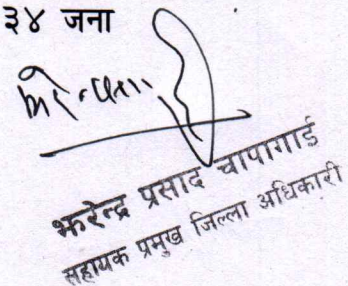 ३४ जना
झरेन्द्र प्रसाद चापागाई
सहायक प्रमुख जिल्ला अधिकारी